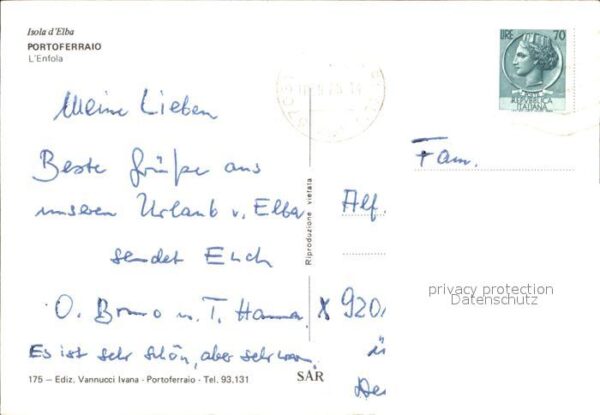 Isola d'Elba
PORTOFERRAIO
L'Enfola
LIRE 70
REPVBBLICA
ITALIANA
Meine Lieben
Beste Grüße aus
unseren Urlaub v. Elba
sendet Euch
O. Bruno u. T. Hanna.
Es ist sehr schön, aber sehr warm.
Riproduzione vietata
Fam.
Alf.
X 920
privacy protection
Datenschutz
175 — Ediz. Vannucci Ivana - Portoferraio - Tel. 93.131
SAR